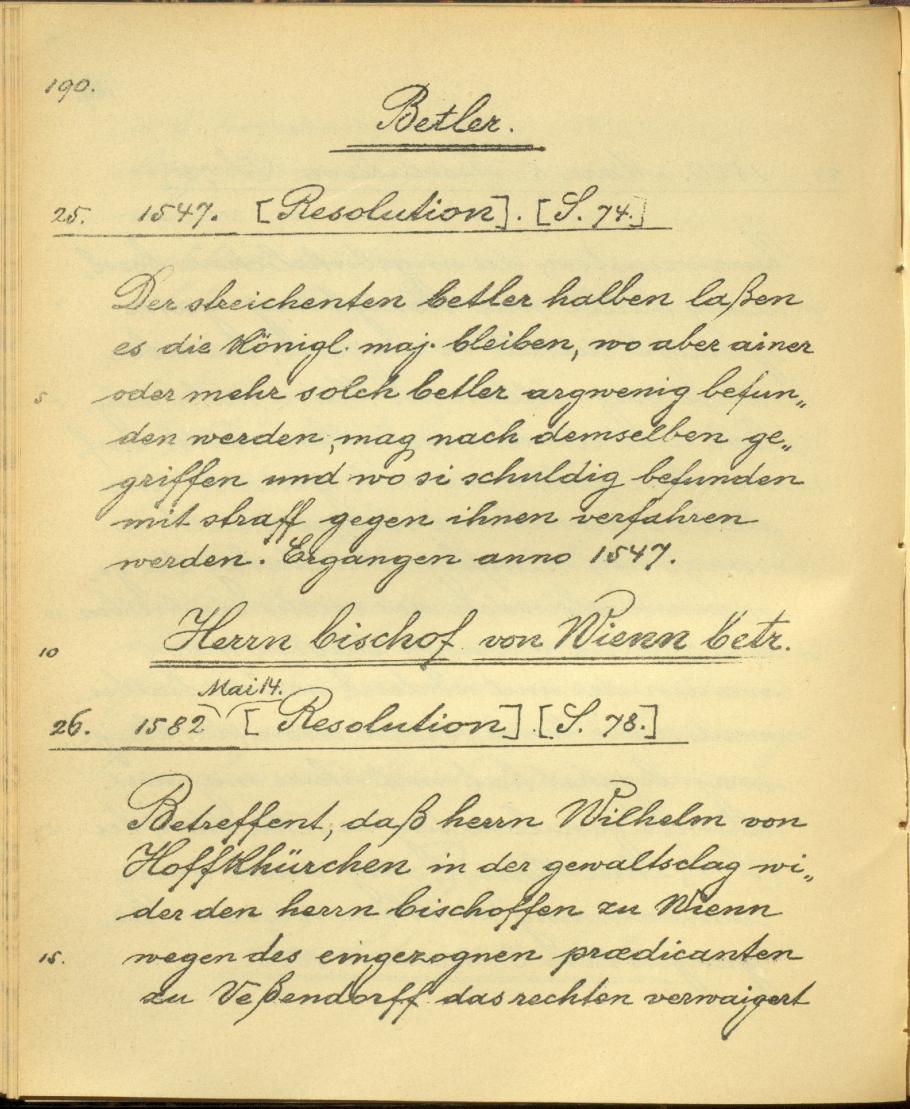 190.
Betler.
25. 1547. [Resolution]. [S. 74.]
Der streichenten betler halben laßen
es die Königl. maj. bleiben, wo aber ainer
5 oder mehr solch betler argwenig befun„
den werden, mag nach demselben ge„
griffen und wo si schuldig befunden
mit straff gegen ihnen verfahren
werden. Ergangen anno 1547.
10 Herrn bischof von Wienn betr.
Mai 14.
26. 1582 [Resolution] [S. 78.]
Betreffent, daß herrn Wilhelm von
Hoffkhürchen in der gewaltsclag wi„
der den herrn bischoffen zu Wienn
15. wegen des eingezognen prædicanten
zu Veßendorff das rechten verwaigert